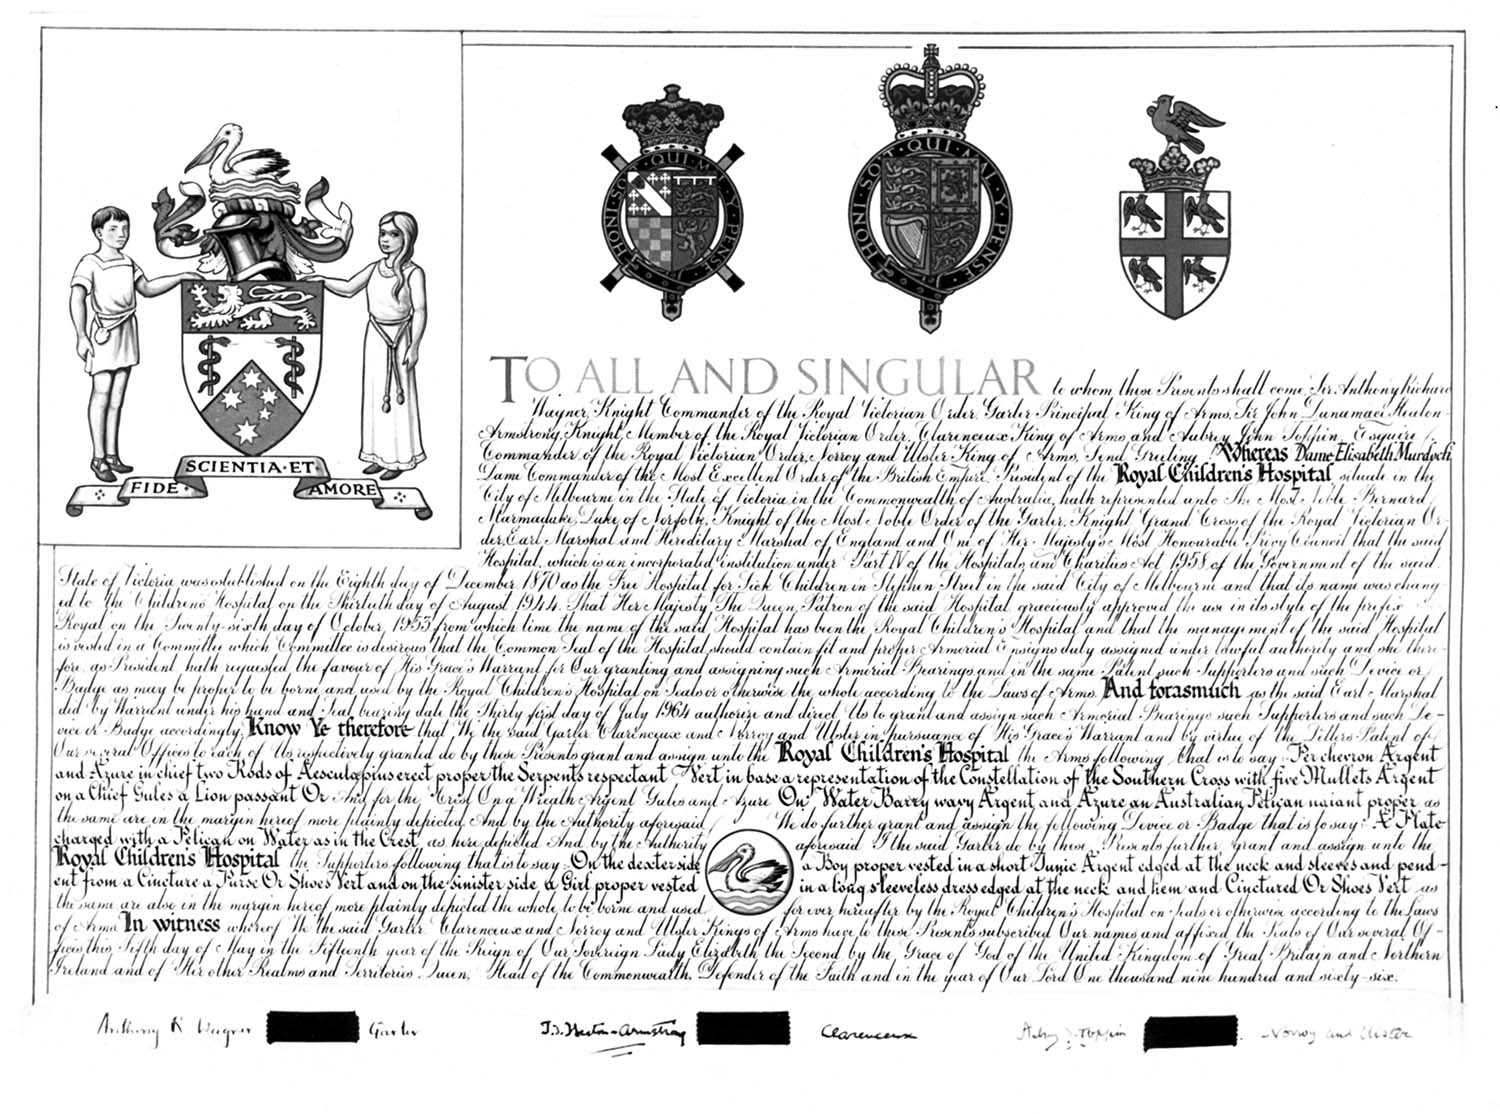 HONI·SOIT·QUI·MAL·Y·PENSE
HONI·SOIT·QUI·MAL·Y·PENSE
SCIENTIA·ET·
FIDE AMORE
TO ALL AND SINGULAR to whom these Presents shall come Sir Anthony Richard
Wagner, Knight Commander of the Royal Victorian Order, Garter Principal King of Arms, Sir John Dunamace Heaton-
Armstrong, Knight, Member of the Royal Victorian Order, Clarenceux King of Arms and Aubrey John Toppin, Esquire,
Commander of the Royal Victorian Order, Norroy and Ulster King of Arms, Send Greeting Whereas Dame Elisabeth Murdoch
Dame Commander of the Most Excellent Order of the British Empire, President of the Royal Children's Hospital situate in the
City of Melbourne in the State of Victoria in the Commonwealth of Australia, hath represented unto The Most Noble Bernard
Marmaduke, Duke of Norfolk, Knight of the Most Noble Order of the Garter, Knight Grand Cross of the Royal Victorian Or-
der, Earl Marshal and Hereditary Marshal of England and One of Her Majesty's Most Honourable Privy Council that the said
Hospital, which is an incorporated institution under Part IV of the Hospitals and Charities Act 1958 of the Government of the said
State of Victoria was established on the Eighth day of December 1870 as the Free Hospital for Sick Children in Stephen Street in the said City of Melbourne and that its name was chang-
ed to the Children's Hospital on the Thirtieth day of August 1944. That Her Majesty The Queen, Patron of the said Hospital, graciously approved the use in its style of the prefix
Royal on the Twenty-sixth day of October 1953 from which time the name of the said Hospital has been the Royal Children's Hospital and that the management of the said Hospital
is vested in a Committee which Committee is desirous that the Common Seal of the Hospital should contain fit and proper Armorial Ensigns duly assigned under lawful authority and she there-
fore as President hath requested the favour of His Grace's Warrant for Our granting and assigning such Armorial Bearings and in the same Patent such Supporters and such Device or
Badge as may be proper to be borne and used by the Royal Children's Hospital on Seals or otherwise the whole according to the Laws of Arms. And forasmuch as the said Earl Marshal
did by Warrant under his hand and Seal bearing date the Thirty first day of July 1964 authorize and direct Us to grant and assign such Armorial Bearings such Supporters and such De-
vice or Badge accordingly, Know Ye therefore that We the said Garter Clarenceux and Norroy and Ulster in pursuance of His Grace's Warrant and by virtue of the Letters Patent of
Our several Offices to each of Us respectively granted do by these Presents grant and assign unto the Royal Children's Hospital the Arms following that is to say:- Per chevron Argent
and Azure in chief two Rods of Aesculapius erect proper the Serpents respectant Vert in base a representation of the Constellation of the Southern Cross with five Mullets Argent
on a Chief Gules a Lion passant Or And for the Crest On a Wreath Argent Gules and Azure On Water Barry wavy Argent and Azure an Australian Pelican naiant proper as
the same are in the margin hereof more plainly depicted. And by the Authority aforesaid We do further grant and assign the following Device or Badge that is to say:- A Plate
charged with a Pelican on Water as in the Crest, as here depicted And by the Authority aforesaid I the said Garter do by these Presents further grant and assign unto the
Royal Children's Hospital the Supporters following that is to say:- On the dexter side a Boy proper vested in a short Tunic Argent edged at the neck and sleeves and pend-
ent from a Cincture a Purse Or Shoes Vert and on the sinister side a Girl proper vested in a long sleeveless dress edged at the neck and hem and Cinctured Or Shoes Vert as
the same are also in the margin hereof more plainly depicted the whole to be borne and used for ever hereafter by the Royal Children's Hospital on Seals or otherwise according to the Laws
of Arms. In witness whereof We the said Garter Clarenceux and Norroy and Ulster Kings of Arms have to these Presents subscribed Our names and affixed the Seals of Our several Of-
fices this Fifth day of May in the Fifteenth year of the Reign of Our Sovereign Lady Elizabeth the Second by the Grace of God of the United Kingdom of Great Britain and Northern
Ireland and of Her other Realms and Territories Queen, Head of the Commonwealth, Defender of the Faith and in the year of Our Lord One thousand nine hundred and sixty-six.
Anthony R Wagner Garter J.D. Heaton-Armstrong Clarenceux Aubrey J. Toppin Norroy and Ulster